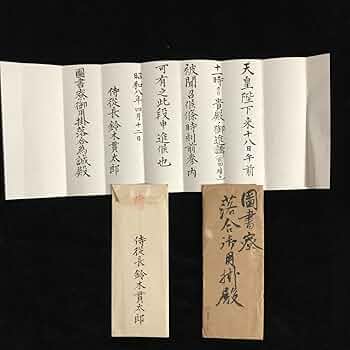 天皇陛下来十八日午前
十一時ヨリ貴殿ノ御進講
被聞召候條時刻前参内
可有之此段申進候也
昭和八年四月十二日
侍従長鈴木貫太郎
圖書寮御用掛落合為誠殿
圖書寮
落合御用掛殿
侍従長鈴木貫太郎